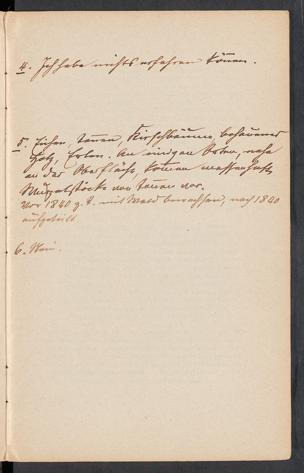 4. Ich habe nichts erfahren können.
5. Eichen, Tannen, Kirschbäume behauenes
Holz, Erlen. An einigen Orten, nahe
an der Oberfläche, kommen massenhaft
Wurzelstöcke von Tannen vor.
Vor 1840 z. T. mit Wald bewachsen, nach 1840
aufgeteilt.
6. Nein.